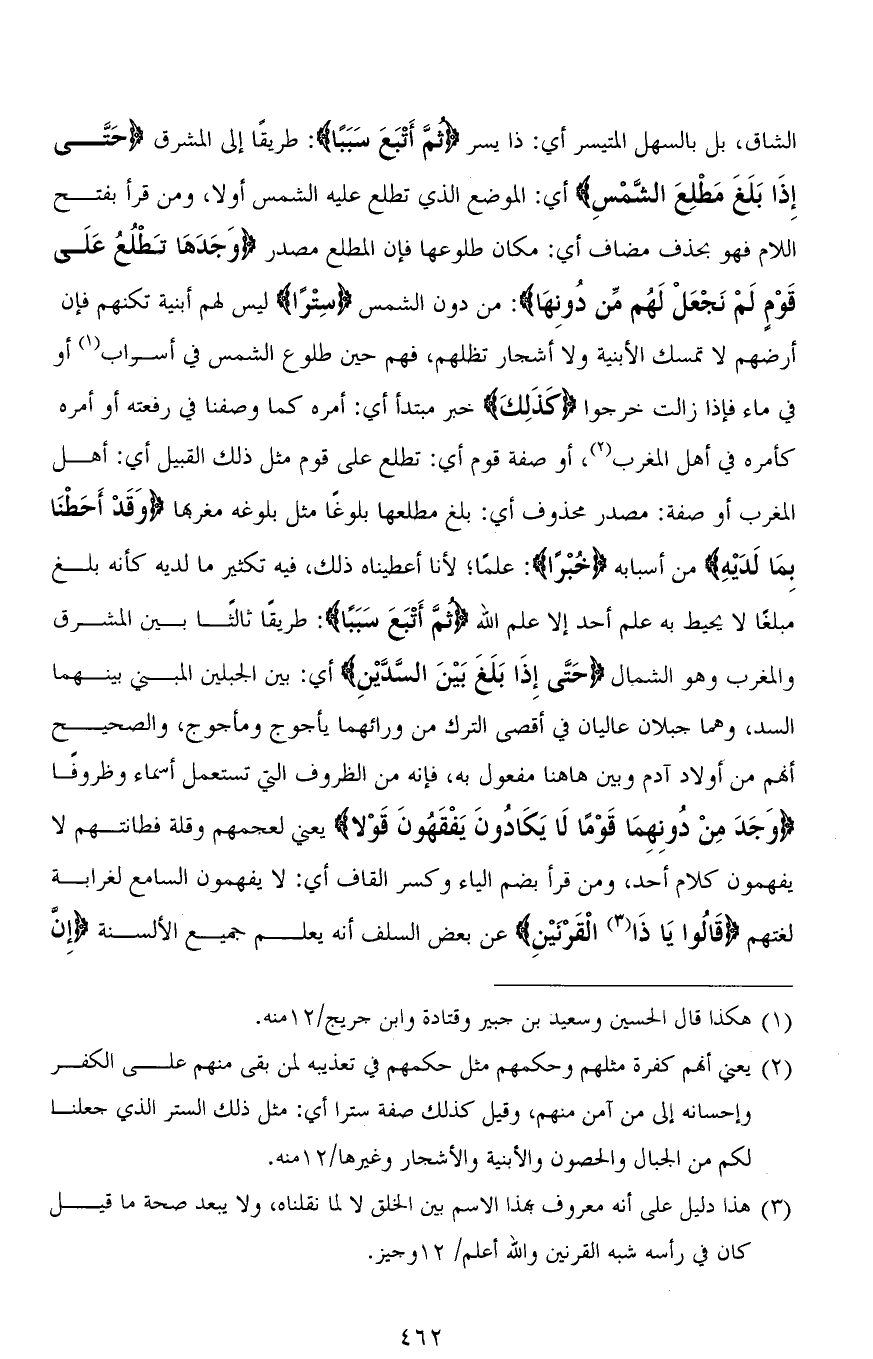 الشاق، بل بالسهل المتيسر أي: ذا يسر ﴿ثُمَّ أَتْبَعَ سَبَبًا﴾: طريقًا إلى المشرق ﴿حَتَّى
إِذَا بَلَغَ مَطْلِعَ الشَّمْسِ﴾ أي: الموضع الذي تطلع عليه الشمس أولا، ومن قرأ بفتح
اللام فهو بحذف مضاف أي: مكان طلوعها فإن المطلع مصدر ﴿وَجَدَهَا تَطْلُعُ عَلَى
قَوْمٍ لَمْ نَجْعَلْ لَهُم مِّن دُونِهَا﴾: من دون الشمس ﴿سِتْرًا﴾ ليس لهم أبنية تكنهم فإن
أرضهم لا تمسك الأبنية ولا أشجار تظلهم، فهم حين طلوع الشمس في أسراب(١) أو
في ماء فإذا زالت خرجوا ﴿كَذَلِكَ﴾ خبر مبتدأ أي: أمره كما وصفنا في رفعته أو أمره
كأمره في أهل المغرب(٢)، أو صفة قوم أي: تطلع على قوم مثل ذلك القبيل أي: أهل
المغرب أو صفة: مصدر محذوف أي: بلغ مطلعها بلوغًا مثل بلوغه مغربها ﴿وَقَدْ أَحَطْنَا
بِمَا لَدَيْهِ﴾ من أسبابه ﴿خُبْرًا﴾: علمًا؛ لأنا أعطيناه ذلك، فيه تكثير ما لديه كأنه بلغ
مبلغًا لا يحيط به علم أحد إلا علم الله ﴿ثُمَّ أَتْبَعَ سَبَبًا﴾: طريقًا ثالثًا بين المشرق
والمغرب وهو الشمال ﴿حَتَّى إِذَا بَلَغَ بَيْنَ السَّدَّيْنِ﴾ أي: بين الجبلين المبني بينهما
السد، وهما جبلان عاليان في أقصى الترك من ورائهما يأجوج ومأجوج، والصحيح
أنهم من أولاد آدم وبين هاهنا مفعول به، فإنه من الظروف التي تستعمل أسماء وظروفًا
﴿وَجَدَ مِنْ دُونِهِمَا قَوْمًا لَا يَكَادُونَ يَفْقَهُونَ قَوْلا﴾ يعني لعجمهم وقلة فطانتهم لا
يفهمون كلام أحد، ومن قرأ بضم الياء وكسر القاف أي: لا يفهمون السامع لغرابة
لغتهم ﴿قَالُوا يَا ذَا(٣) الْقَرْنَيْنِ﴾ عن بعض السلف أنه يعلم جميع الألسنة ﴿إِنَّ
(١) هكذا قال الحسين وسعيد بن جبير وقتادة وابن جريج/١٢منه.
(٢) يعني أنهم كفرة مثلهم وحكمهم مثل حكمهم في تعذيبه لمن بقى منهم على الكفر
وإحسانه إلى من آمن منهم، وقيل كذلك صفة سترا أي: مثل ذلك الستر الذي جعلنا
لكم من الجبال والحصون والأبنية والأشجار وغيرها/١٢منه.
(٣) هذا دليل على أنه معروف بهذا الاسم بين الخلق لا لما نقلناه، ولا يبعد صحة ما قيل
كان في رأسه شبه القرنين والله أعلم/ ١٢وجيز.
٤٦٢